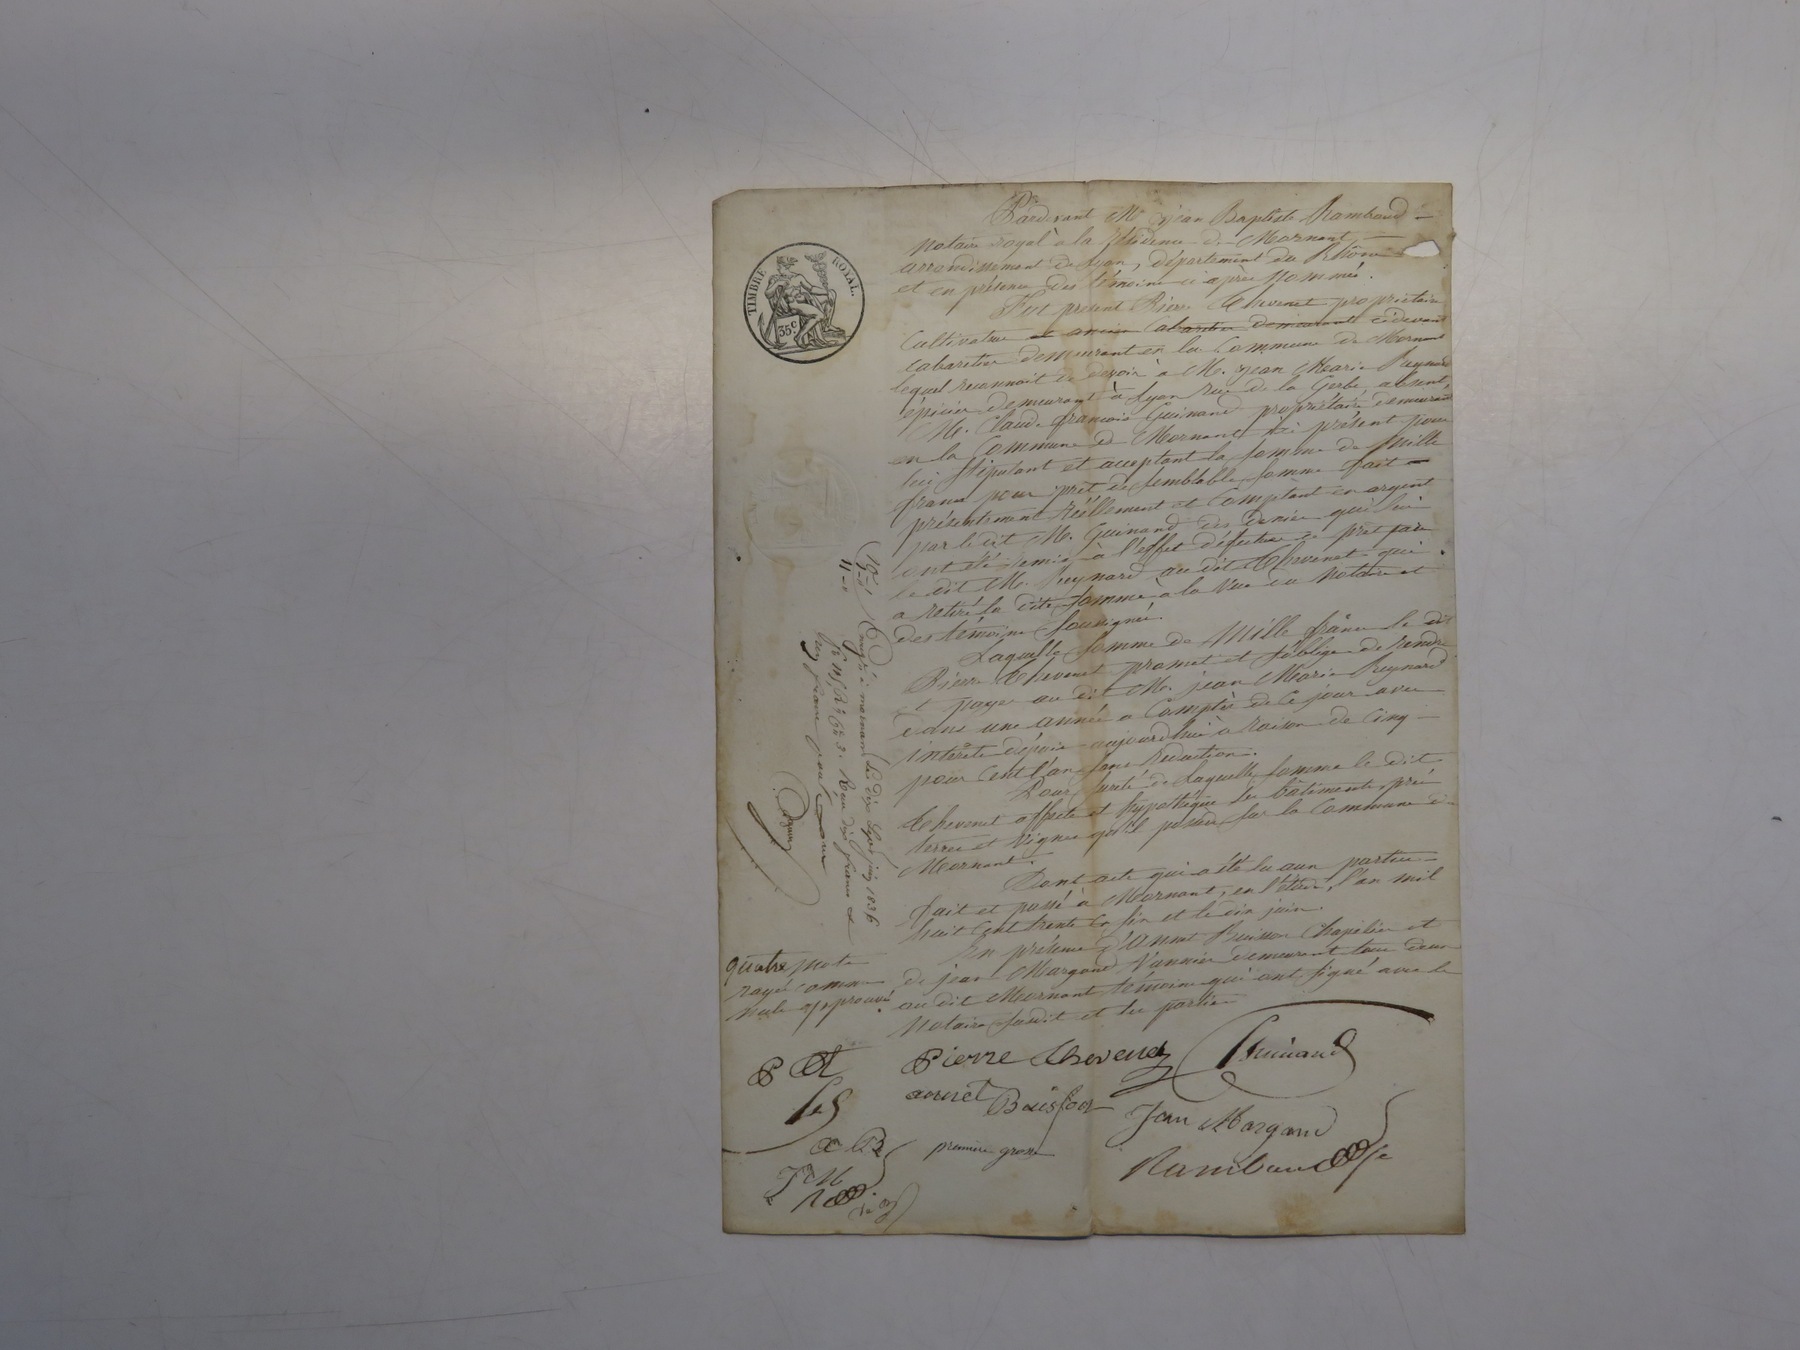 TIMBRE ROYAL.
35 c.
Pardevant Me jean Baptiste Rambaud
notaire royal à la résidence de Mornant
arrondissement de Lyon, département du Rhône
et en présence des témoins ci après nommés.
Fut présent Pierre Thevenet propriétaire
Cultivateur et ancien Cabaretier demeurant cidevant
cabaretier demeurant en la Commune de Mornant
lequel reconnoit de devoir à M. jean Marie Reynard
épicier demeurant à Lyon rue de la Gerbe, absent,
M. Claude françois Guinand propriétaire demeurant
en la Commune de Mornant ici présent pour
lui stipulant et acceptant la somme de Mille
francs pour prêt de semblable somme fait
présentement réellement et Comptant en argent
par le dit M. Guinand des deniers qui lui
ont été remis à l'effet d'effectuer ce prêt par
le dit M. Reynard au dit Thevenet qui
a retiré la dite somme a la vue du notaire et
des témoins soussignés.
Laquelle somme de Mille francs le dit
Pierre Thevenet promet et s'oblige de rendre
et payer au dit M. jean Marie Reynard
dans une année a Compter de Ce jour avec
intérêts depuis aujourd'hui à raison de Cinq
pour Cent l'an sans rédaction.
Pour sureté de laquelle somme le dit
Thevenet affecte et hypothèque les bâtiments, prés
terres et vignes qu'il possède sur la Commune de
Mornant.
Dont acte qui a été lu aux parties
fait et passé à Mornant, en l'étude, l'an mil
huit Cent trente Six et le dix juin.
En présence d'Annet Buisson Chapelier et
de jean Margand Vannier demeurant tous deux
au dit Mornant témoins qui ont signé avec le
Notaire susdit et les parties
quatre mots
rayés comme
nuls approuvés.
Enregistré à mornant le dix sept juin 1836
Reçu dix francs et
un franc pour
P t Pierre Thevenet Guinand
annet Buisson
Jean Margand
a B première grosse
J M
Rambaud